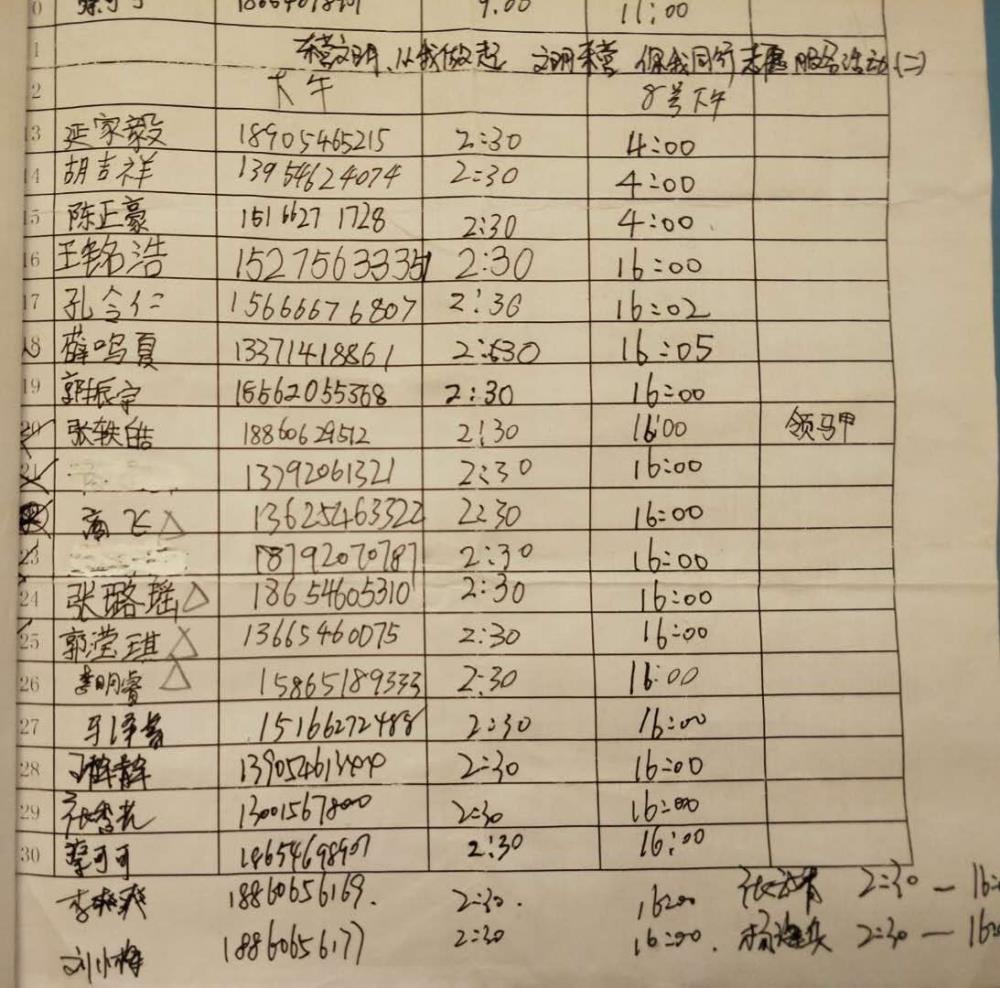 0 9:00 11:00
1 东营文明,从我做起 文明东营 你我同行志愿服务活动(二)
2 下午 8号下午
13 延家毅 18905465215 2:30 4:00
14 胡吉祥 13954624074 2:30 4:00
15 陈正豪 15166271728 2:30 4:00
16 王铭浩 15275633351 2:30 16:00
17 孔令仁 15666676807 2:30 16:02
18 薛鸣夏 13371418861 2:30 16:05
19 郭振宇 15562055368 2:30 16:00
20 张轶皓 18860629512 2:30 16:00 领马甲
21 13792061321 2:30 16:00
高飞△ 13625463322 2:30 16:00
23 18792070787 2:30 16:00
24 张璐瑶△ 18654605310 2:30 16:00
25 郭滢琪△ 13665460075 2:30 16:00
26 李明睿△ 15865189333 2:30 16:00
27 15166272488 2:30 16:00
28 2:30 16:00
29 13001567800 2:30 16:00
30 蔡可可 18654698907 2:30 16:00
李爽爽 18860656169. 2:30. 16:00 2:30 — 16:
刘小梅 18860656177 2:30 16:00. 2:30 — 16: